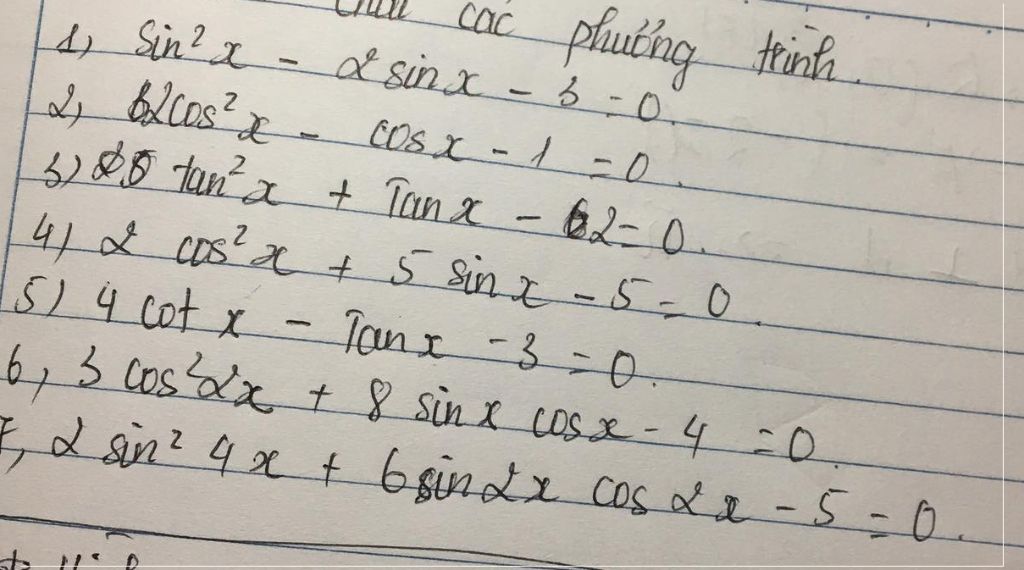 các phương trình.
1, Sin²x - 2sinx - 3 = 0.
2, 2cos²x - cosx - 1 = 0.
3) tan²x + Tanx - 2 = 0.
4) 2 cos²x + 5 sinx - 5 = 0.
5) 4 cot x - Tanx - 3 = 0.
6, 3 cos²2x + 8 sinx cosx - 4 = 0.
7, 2 sin² 4x + 6sin2x cos2x - 5 = 0.